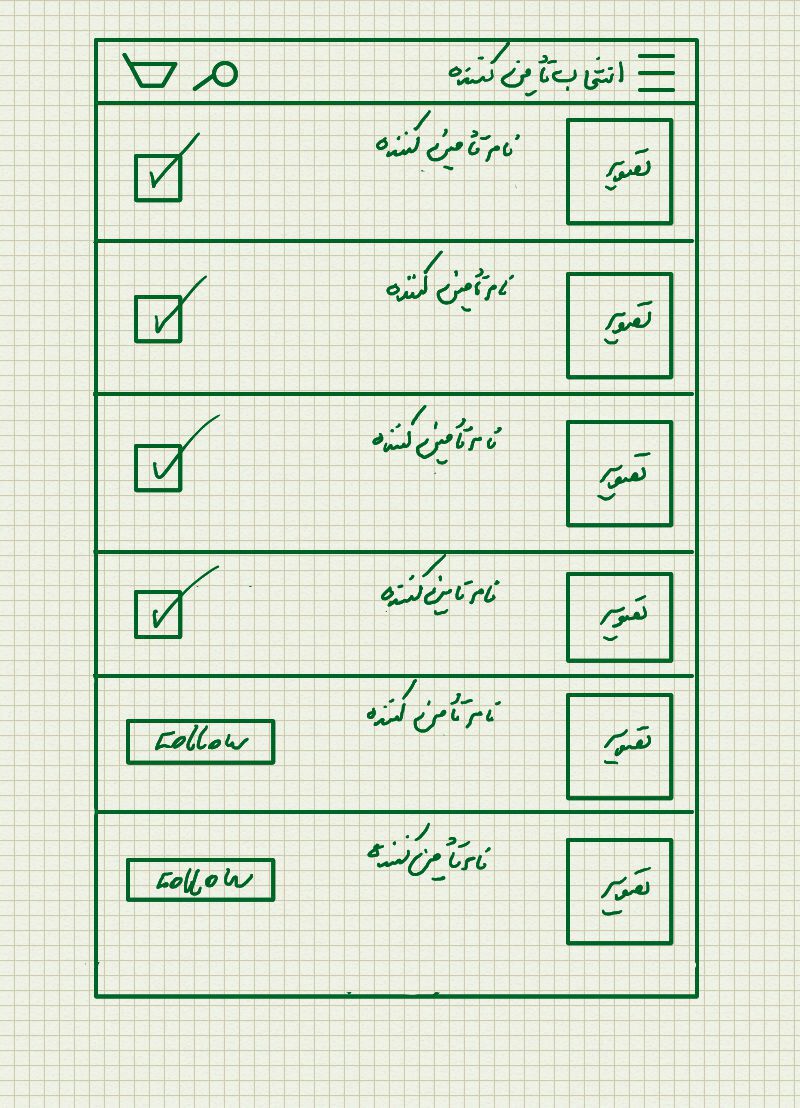 انتخاب تأمین کننده
تصویر
نام تأمین کننده
تصویر
نام تأمین کننده
تصویر
نام تأمین کننده
تصویر
نام تامین کننده
تصویر
نام تأمین کننده
Follow
تصویر
نام تأمین کننده
Follow